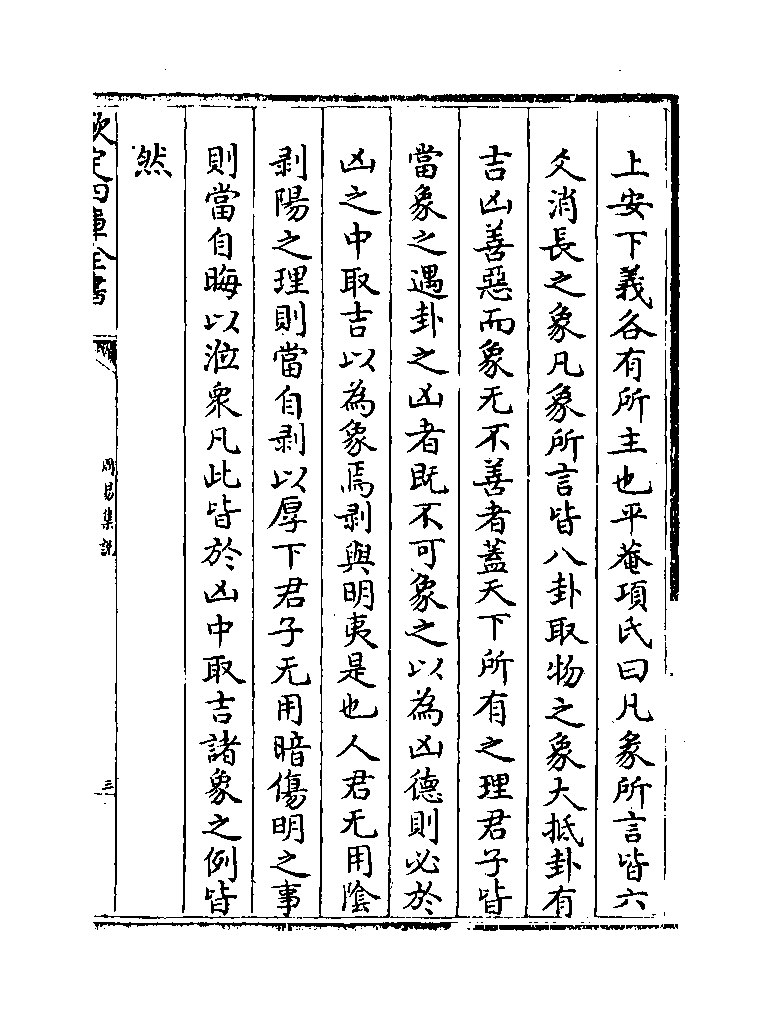 上安下義各有所主也平菴項氏曰凡彖所言皆六
爻消長之象凡象所言皆八卦取物之象大抵卦有
吉凶善惡而象无不善者蓋天下所有之理君子皆
當象之遇卦之凶者既不可象之以為凶德則必於
凶之中取吉以為象焉剥與明夷是也人君无用陰
剥陽之理則當自剥以厚下君子无用暗傷明之事
則當自晦以涖衆凡此皆於凶中取吉諸象之例皆
然
欽定四庫全書
周易集說
三